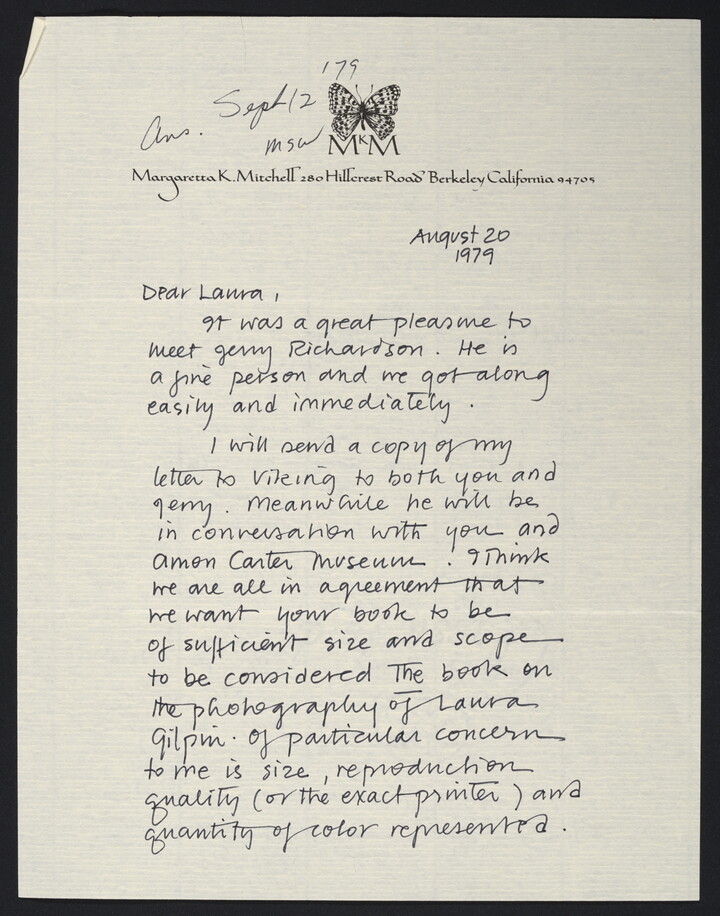 '79
Ans. Sept 12
msw
MKM
Margaretta K. Mitchell 280 Hillcrest Road Berkeley California 94705
August 20
1979
Dear Laura,
It was a great pleasure to
meet Jerry Richardson. He is
a fine person and we got along
easily and immediately.
I will send a copy of my
letter to Viking to both you and
Jerry. Meanwhile he will be
in conversation with you and
Amon Carter Museum. I think
we are all in agreement that
we want your book to be
of sufficient size and scope
to be considered The book on
the photography of Laura
Gilpin. Of particular concern
to me is size, reproduction
quality (or the exact printer) and
quantity of color represented.